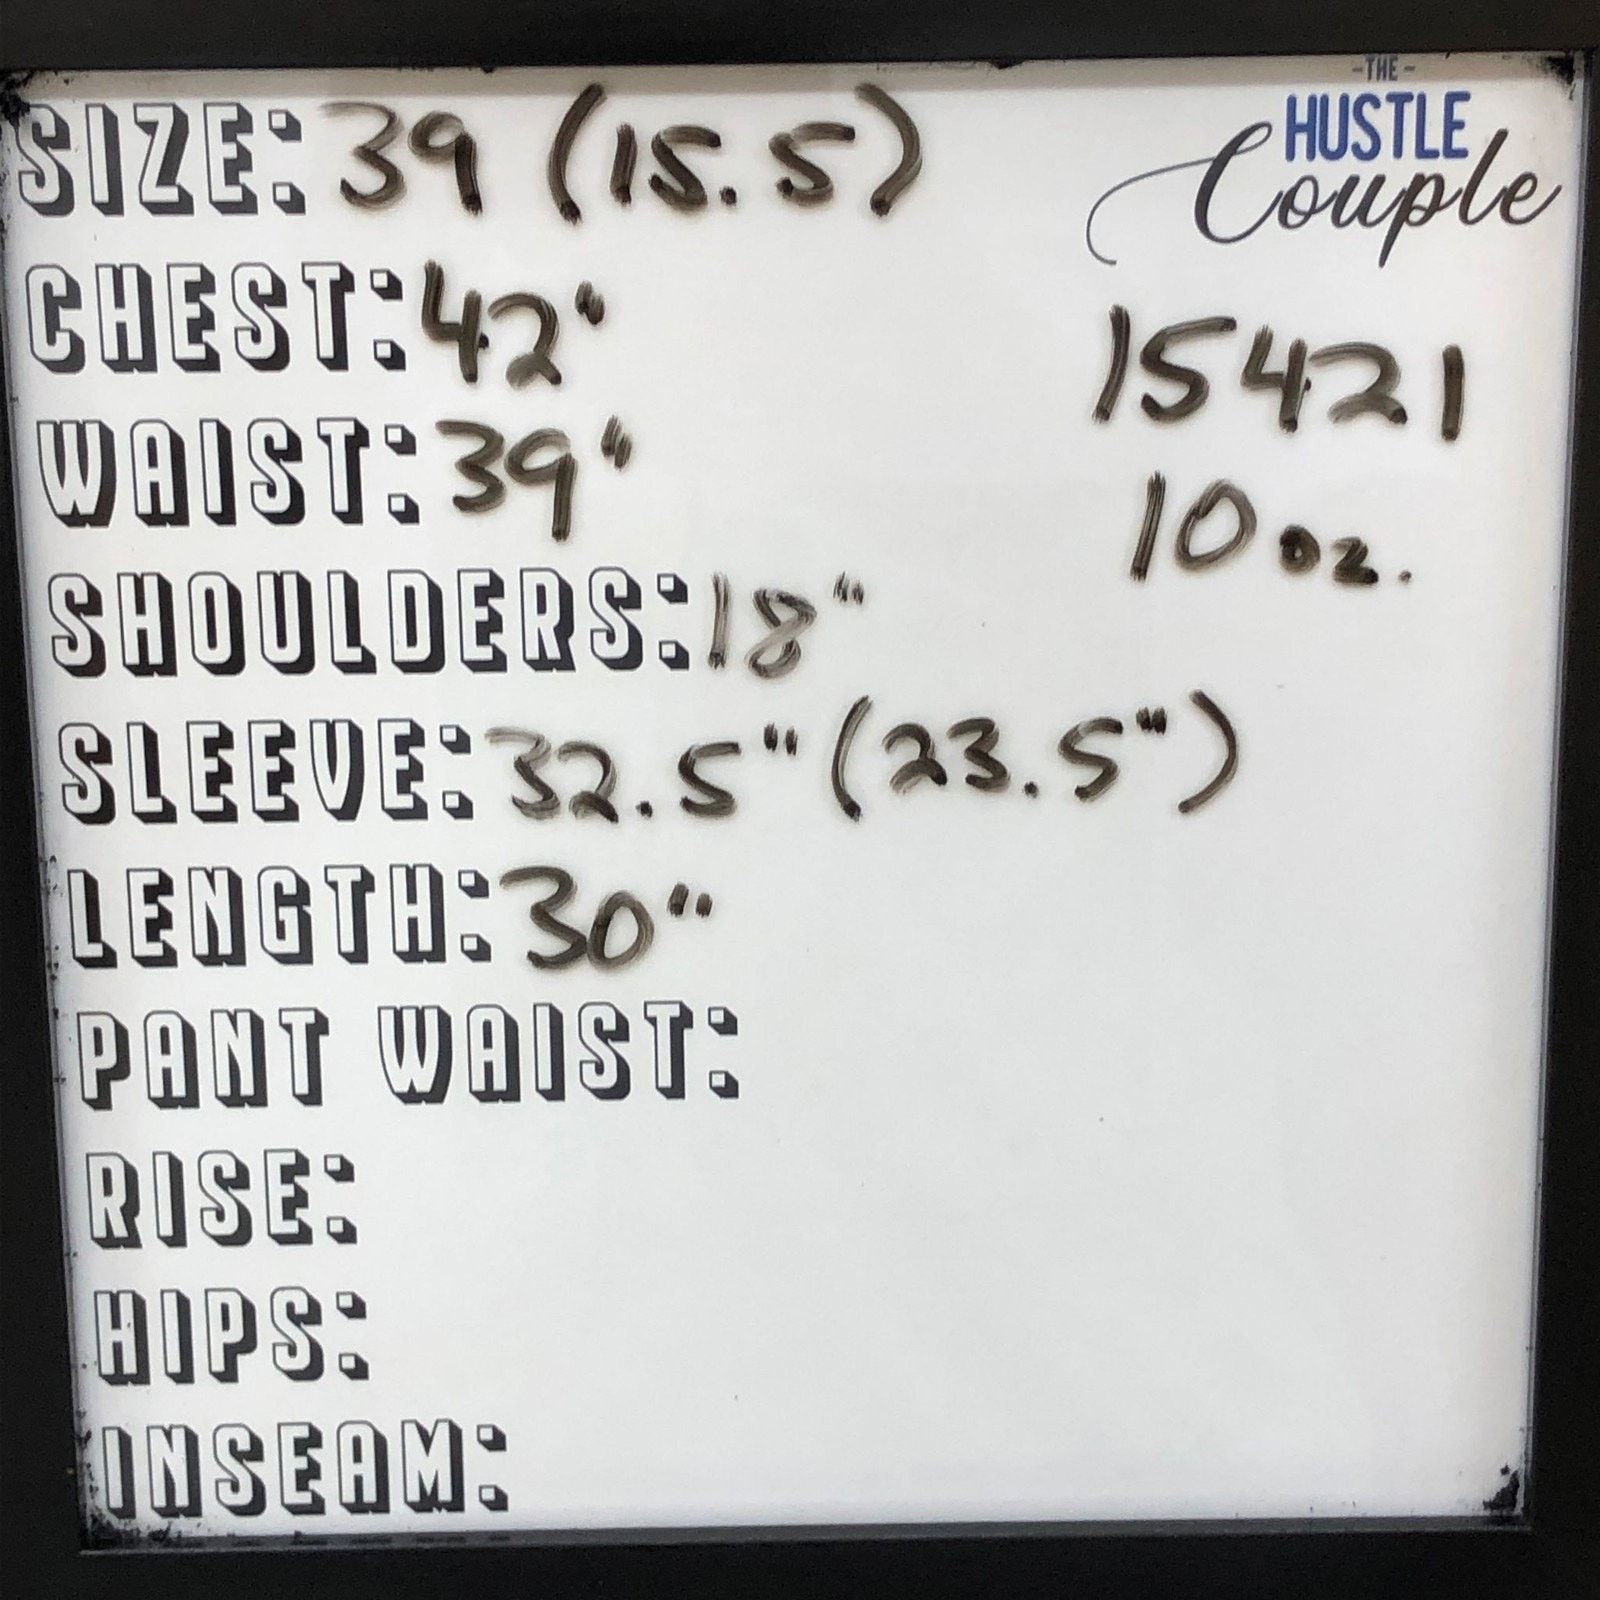 -THE-
HUSTLE
Couple
SIZE: 39 (15.5)
CHEST: 42"
15421
WAIST: 39"
10 oz.
SHOULDERS: 18"
SLEEVE: 32.5" (23.5")
LENGTH: 30"
PANT WAIST:
RISE:
HIPS:
INSEAM: